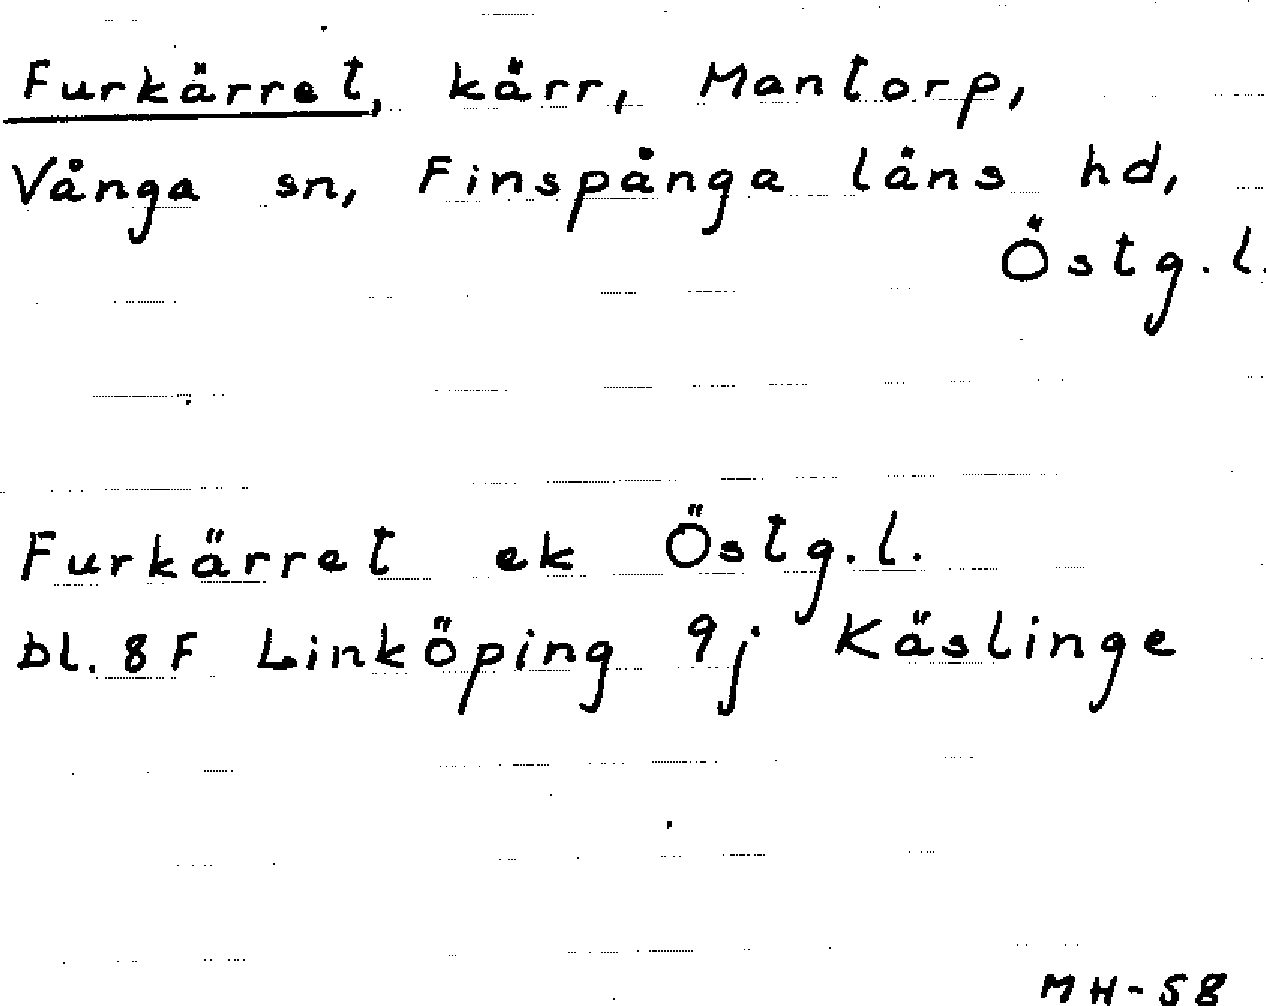 Furkärret, kärr, Mantorp,
Vånga sn, Finspånga läns hd,
Östg.l.
Furkärret ek Östg.l.
bl. 8F Linköping 9j Käslinge
MH-58